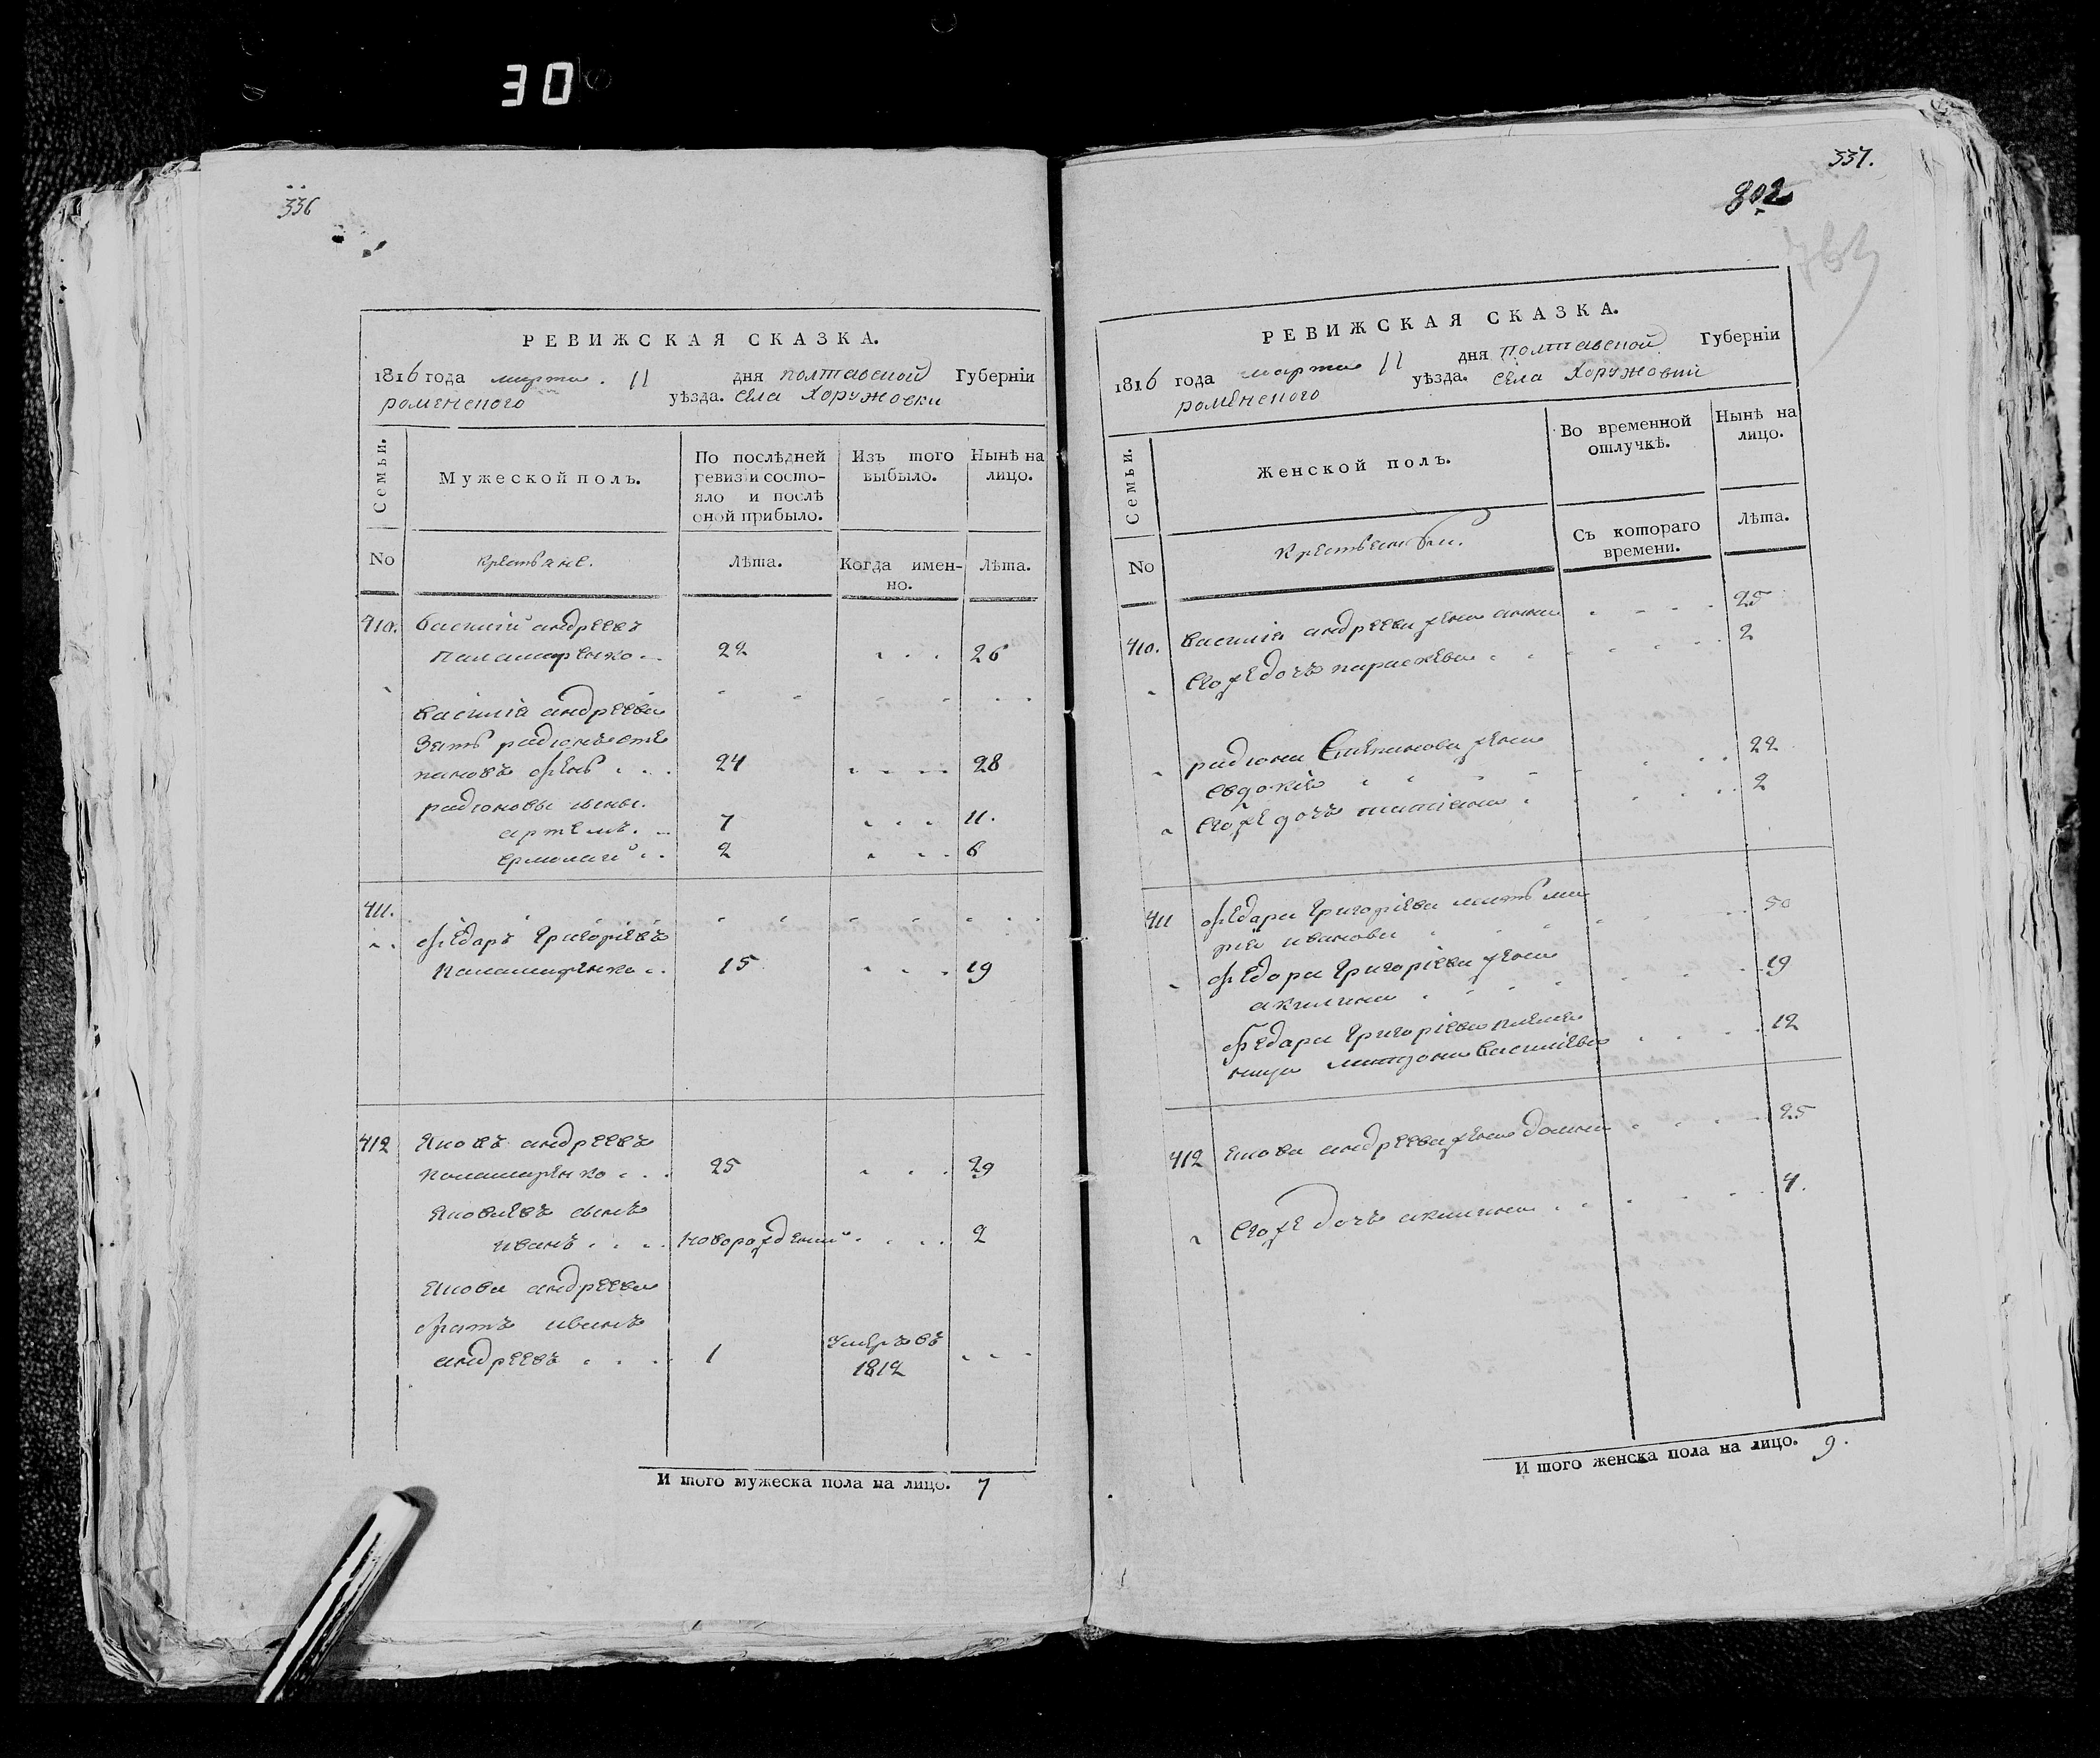 30
336
РЕВИЖСКАЯ СКАЗКА.
1816 года марта 11 дня полтавской Губерніи
роменского уѣзда. села Хоружовки
Семьи.
Мужеской полъ.
По послѣдней ревизіи состо-
яло и послѣ
оной прибыло.
Изъ того
выбыло.
Нынѣ на
лицо.
No
крестьяне.
Лѣта.
Когда имен-
но.
Лѣта.
410. Василий андреевъ
Паламаренко 22 26
Василія андреева
зять радіонъ сте
пановъ 24 28
радіоновы сыны.
артемъ. 7 11.
ермолай 2 6
411.
федаръ григоріевъ
Паламаренко 15 19
412 Яковъ андреевъ
паламаренко 25 29
Яковлевъ сынъ
иванъ новорожденый 2
Якова андреева
братъ иванъ
андреевъ 1 Умеръ въ
1812
И того мужеска пола на лицо. 7
337.
802
763
РЕВИЖСКАЯ СКАЗКА.
1816 года марта 11 дня полтавской Губерніи
роменского уѣзда. села Хоружовки
Семьи.
Женской полъ.
Во временной
отлучкѣ.
Нынѣ на
лицо.
No
Съ котораго
времени.
Лѣта.
410. Василія андреева жена анна 25
Его же дочь параскева 2
радіона Степанова жена
евдокія 22
Его же дочь татіана 2
411 федара григоріева мать ма
рія иванова 50
федора григоріева жена
акилина 19
федара григоріева племен
ница Василіева 12
412 Якова андреева жена домна 25
Его же дочь акилина 4.
И того женска пола на лицо. 9.